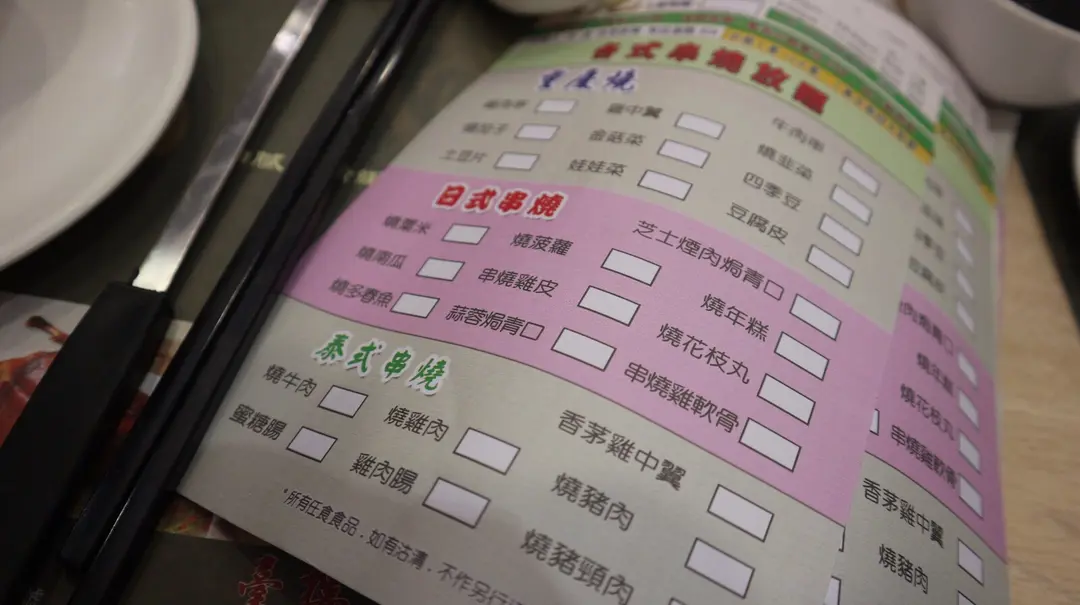 各式串燒放題
雞中翼 牛肉串
燒茄子 金菇菜 燒韭菜
土豆片 娃娃菜 四季豆
豆腐皮
日式串燒
燒粟米 燒菠蘿 芝士煙肉焗青口
燒南瓜 串燒雞皮 燒年糕
燒多春魚 蒜蓉焗青口 燒花枝丸
串燒雞軟骨
泰式串燒
燒牛肉 燒雞肉 香茅雞中翼
蜜糖腸 雞肉腸 燒豬肉
燒豬頸肉
*所有任食食品，如有沽清，不作另行
燒年糕
燒花枝丸
串燒雞軟骨
香茅雞中翼
燒豬肉